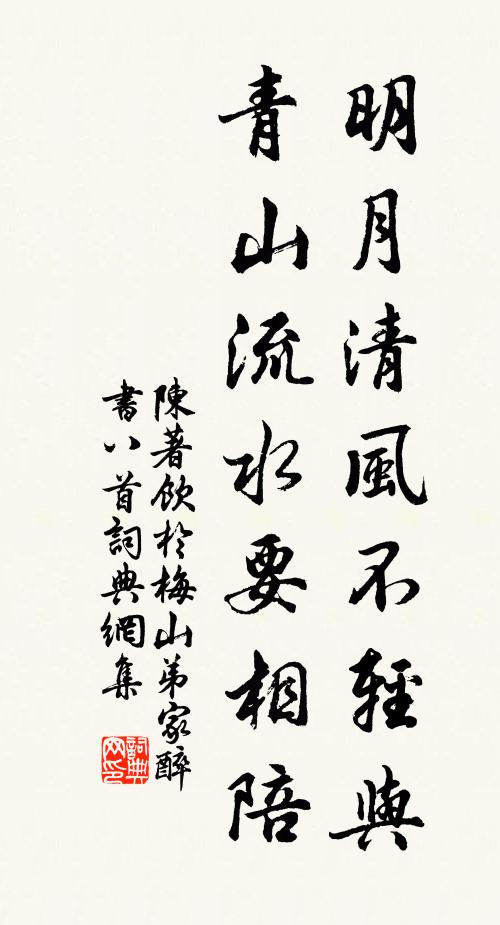 明月清風不輕與
青山流水要相陪
陳著飲於梅山弟家醉
書八首詞典網集
詞典
网印